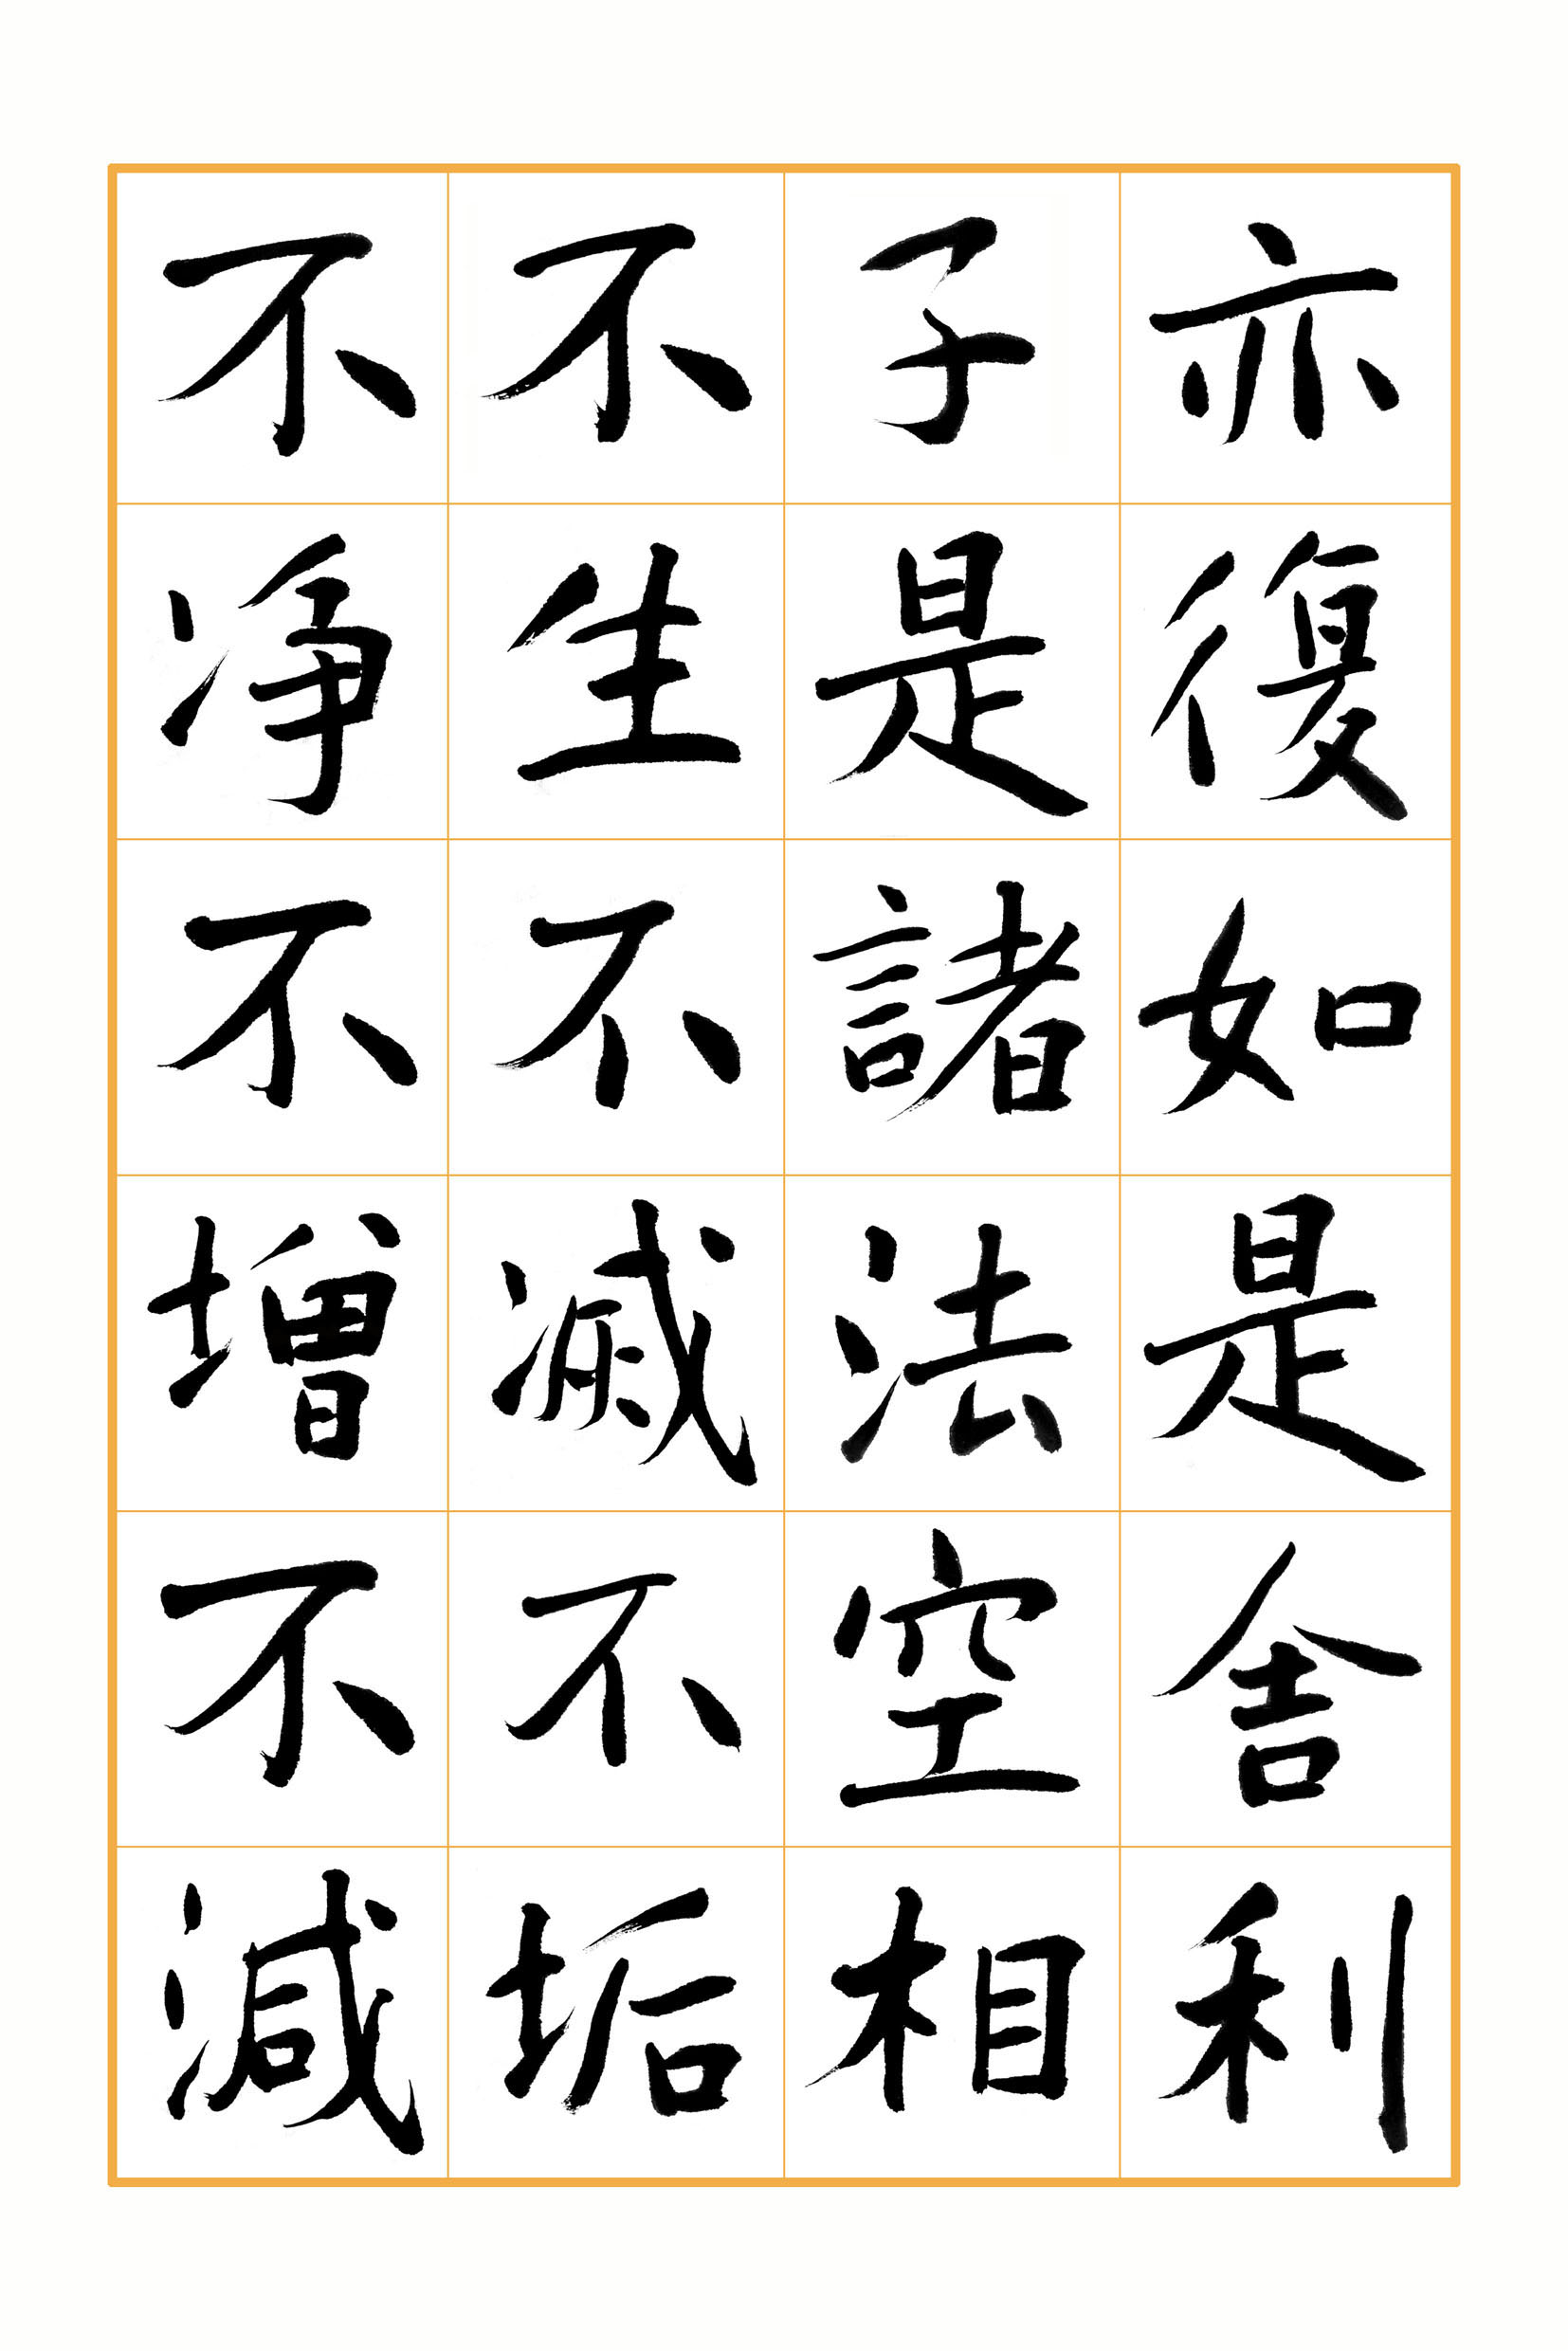 亦復如是舍利
子是諸法空相
不生不滅不垢
不净不增不減